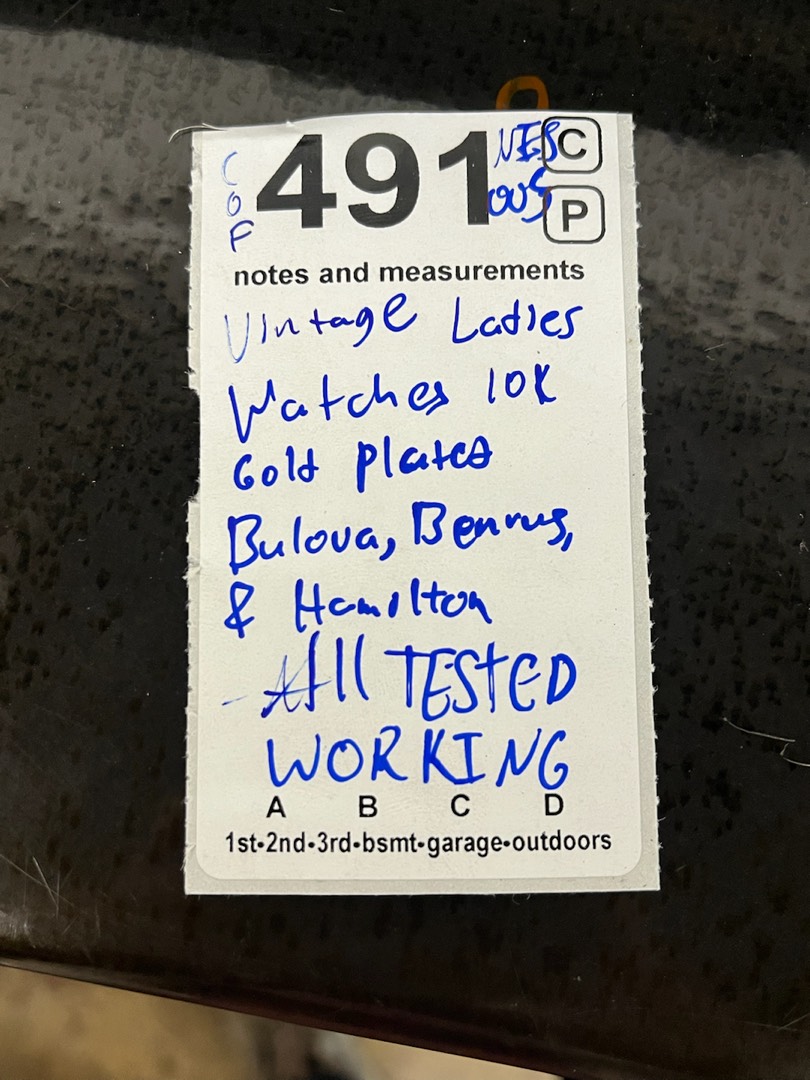 COF
491
NES
OUS
C
P
notes and measurements
Vintage Ladies
Watches 10K
Gold plated
Bulova, Benrus,
& Hamilton
- All TESTED
WORKING
A B C D
1st-2nd-3rd-bsmt-garage-outdoors